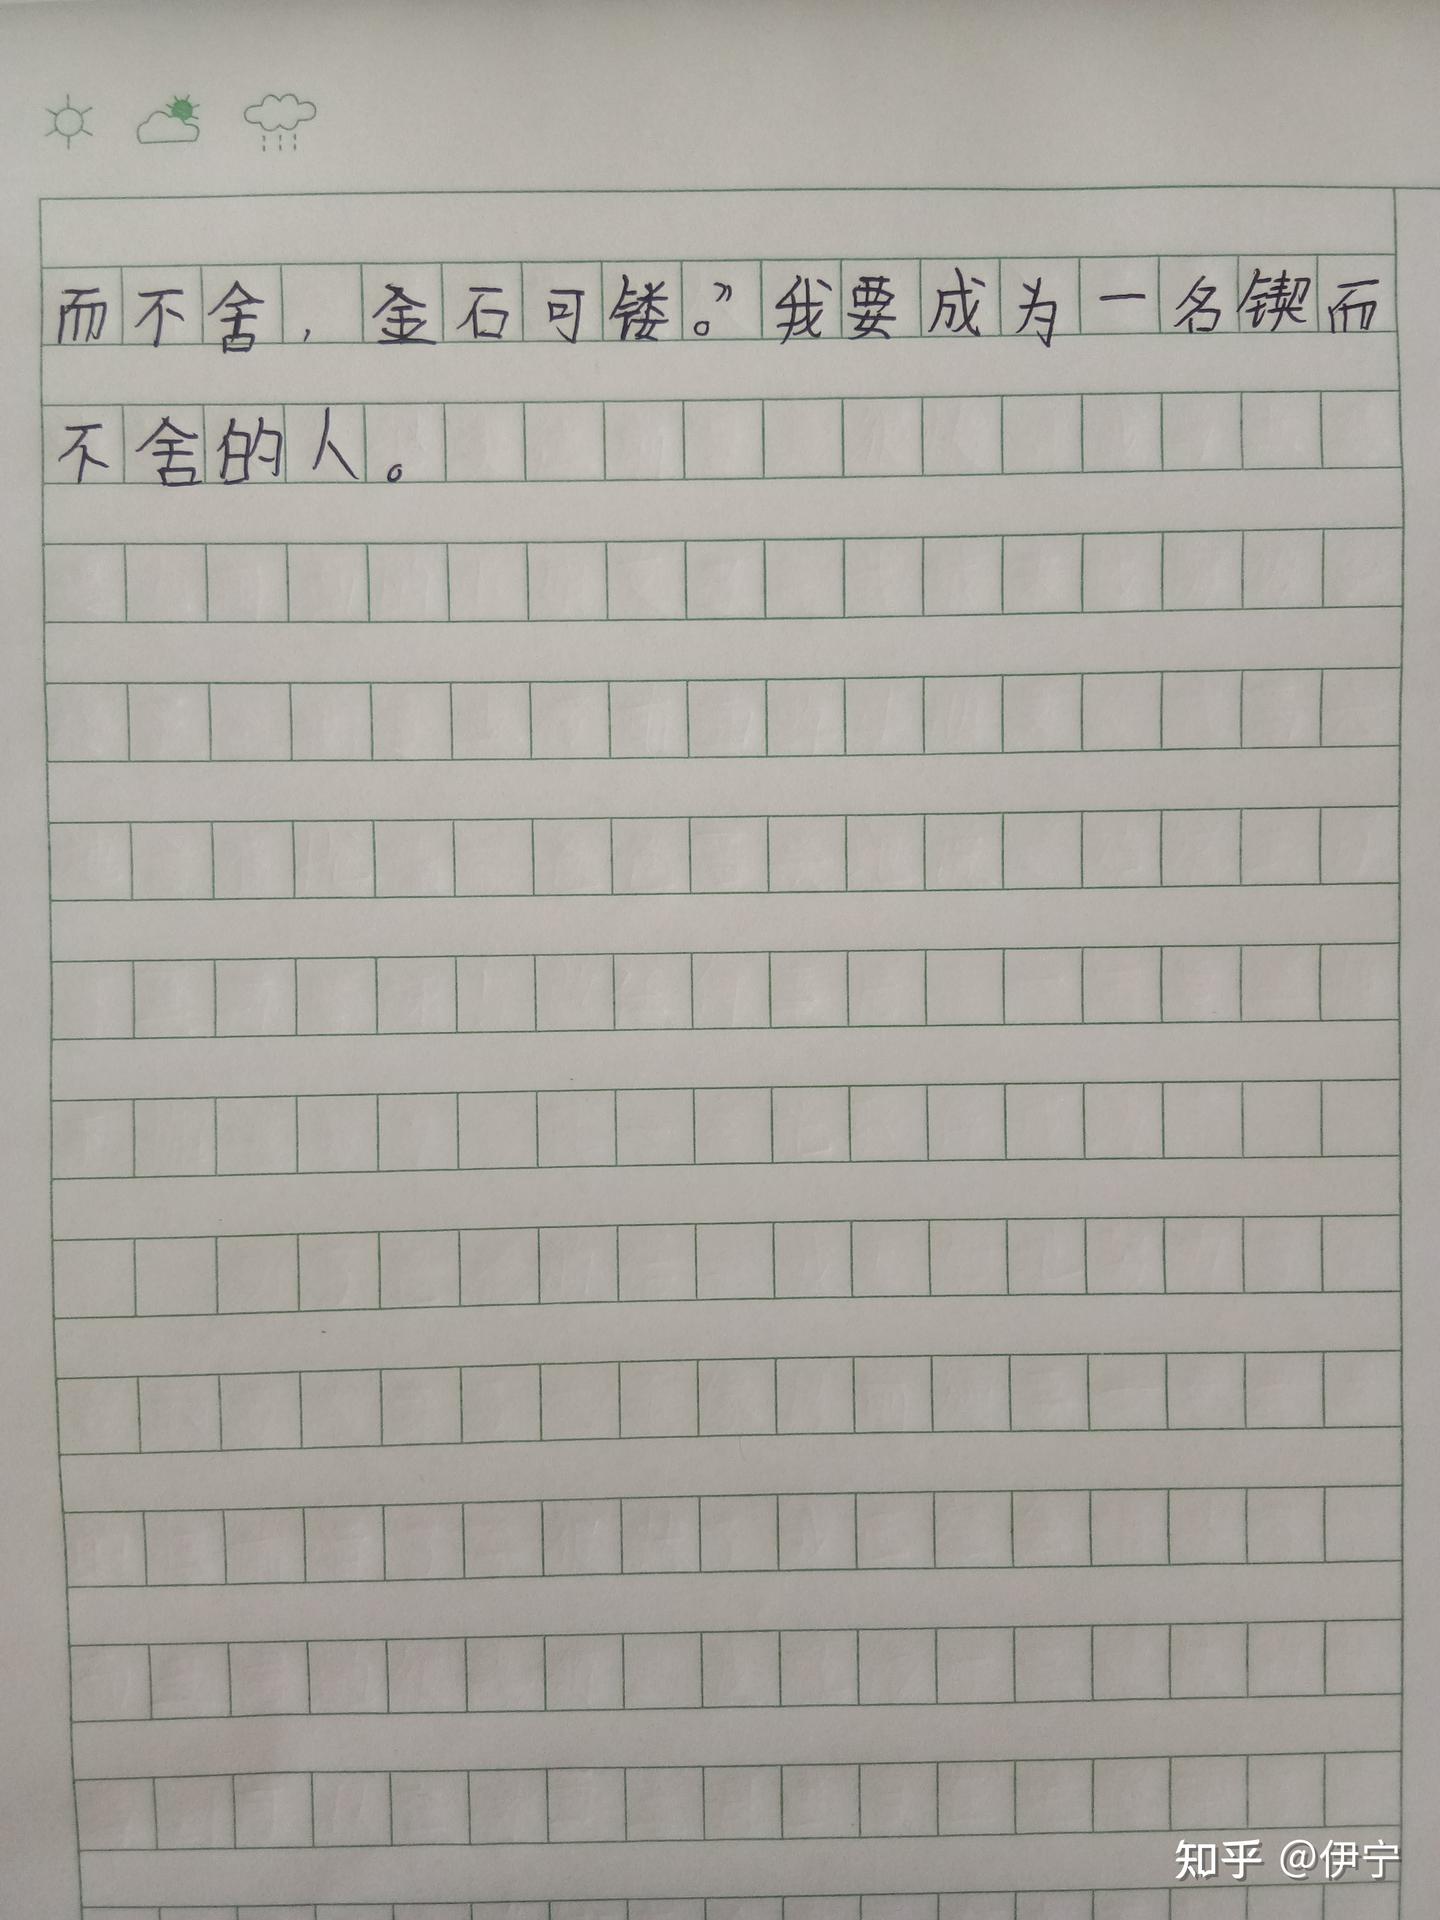 而不舍，金石可镂。”我要成为一名锲而
不舍的人。
知乎 @伊宁